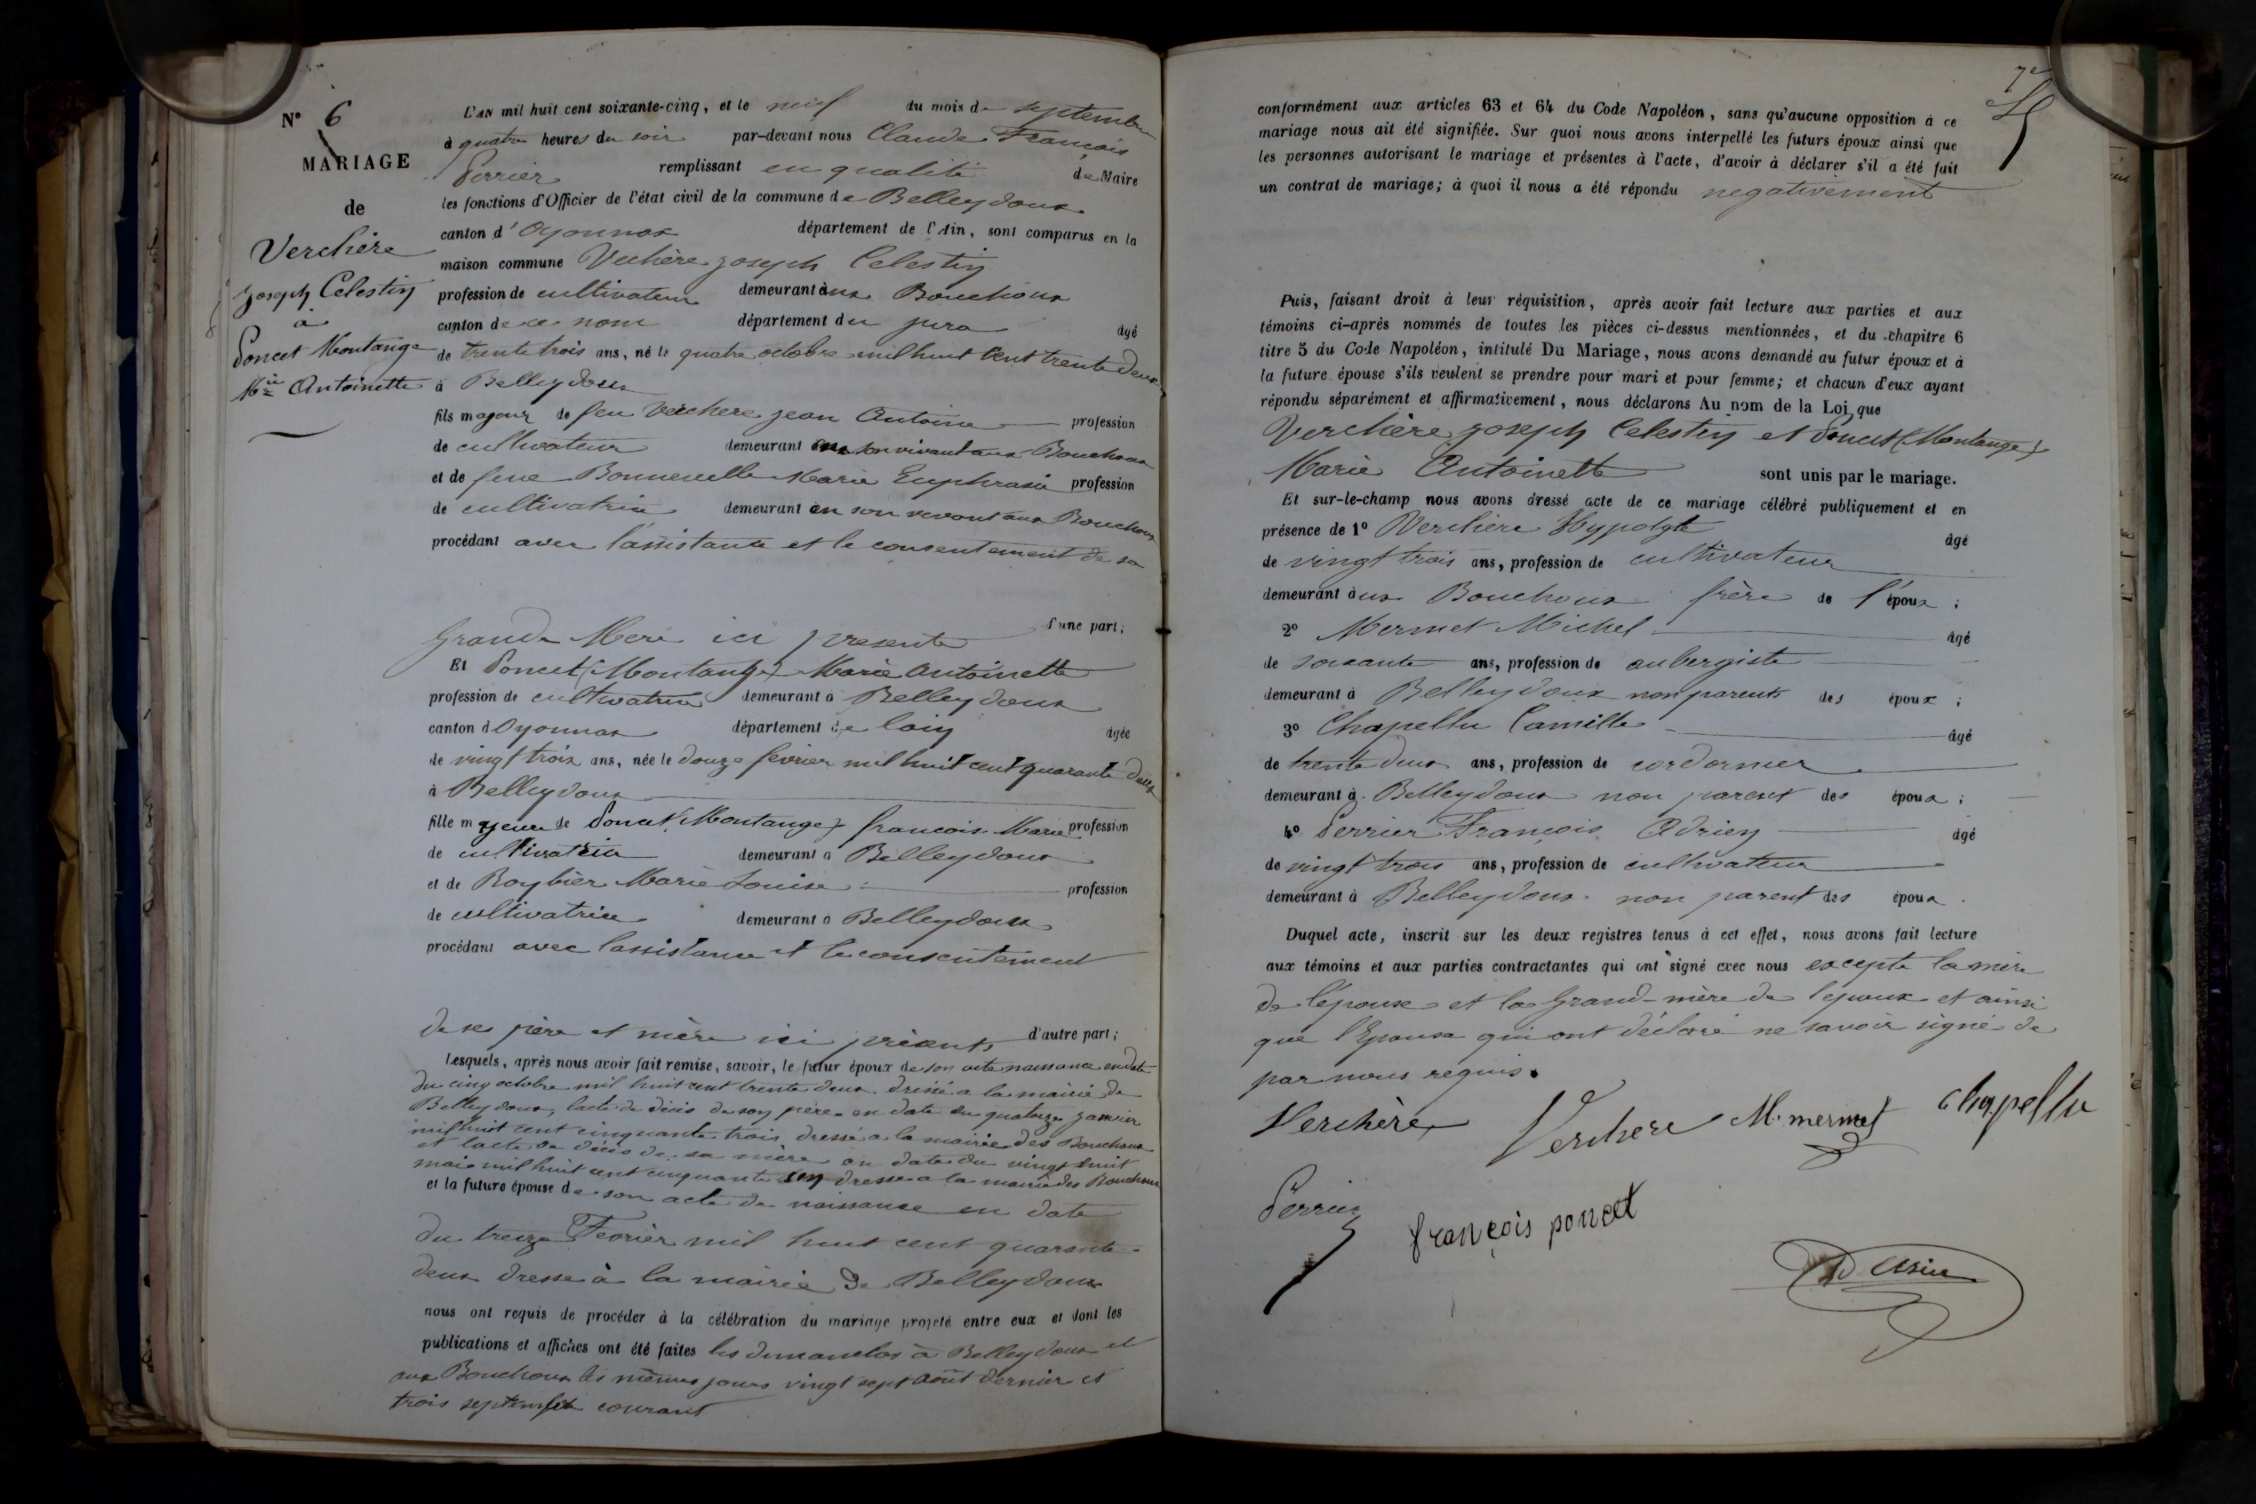 N° 6
MARIAGE
de
Verchère
Joseph Celestin
à
Poncet Montange
Mie Antoinette
L'AN mil huit cent soixante-cinq, et le neuf du mois de septembre
à quatre heures du soir par-devant nous Claude François
Perrier remplissant en qualité de Maire
les fonctions d'Officier de l'état civil de la commune de Belleydoux
canton d'Oyonnax département de l'Ain, sont comparus en la
maison commune Vechère Joseph Celestin
profession de cultivateur demeurant aux Bouchoux
canton de ce nom département du jura âgé
de trente trois ans, né le quatre octobre mil huit cent trente deux
à Belleydoux
fils majeur de feu Verchere jean Antoine profession
de cultivateur demeurant en son vivant aux Bouchoux
et de feue Bonneville Marie Euphrasie profession
de cultivatrice demeurant en son vivant aux Bouchoux
procédant avec l'assistance et le consentement de sa
Grande Mere ici presente d'une part;
Et Poncet (Montange) Marie Antoinette
profession de cultivatrice demeurant à Belleydoux
canton d'Oyonnax département de lain âgée
de vingt trois ans, née le douze fevrier mil huit cent quarante deux
à Belleydoux
fille majeure de Poncet (Montange) francois Marie profession
de cultivatrice demeurant à Belleydoux
et de Roybier Marie Louise profession
de cultivatrice demeurant à Belleydoux
procédant avec lassistance et le consentement
de ses père et mère ici présents d'autre part;
Lesquels, après nous avoir fait remise, savoir, le futur époux de son acte naissance en date
du cinq octobre mil huit cent trente deux dressé a la mairie de
Belleydoux, lacte de décès de son père en date du quatorze janvier
mil huit cent cinquante trois dressé a la mairie des Bouchoux
et lacte de décès de sa mère en date du vingt huit
mai mil huit cent cinquante dressé a la mairie des Bouchoux
et la future épouse de son acte de naissance en date
du treize Fevrier mil huit cent quarante
deux dresse à la mairie de Belleydoux
nous ont requis de procéder à la célébration du mariage projeté entre eux et dont les
publications et affiches ont été faites les dimanches à Belleydoux et
aux Bouchoux les mêmes jours vingt sept août dernier et
trois septembre courant
7e
conformément aux articles 63 et 64 du Code Napoléon, sans qu'aucune opposition à ce
mariage nous ait été signifiée. Sur quoi nous avons interpellé les futurs époux ainsi que
les personnes autorisant le mariage et présentes à l'acte, d'avoir à déclarer s'il a été fait
un contrat de mariage; à quoi il nous a été répondu negativement
Puis, faisant droit à leur réquisition, après avoir fait lecture aux parties et aux
témoins ci-après nommés de toutes les pièces ci-dessus mentionnées, et du chapitre 6
titre 5 du Code Napoléon, intitulé Du Mariage, nous avons demandé au futur époux et à
la future épouse s'ils veulent se prendre pour mari et pour femme; et chacun d'eux ayant
répondu séparément et affirmativement, nous déclarons Au nom de la Loi que
Verchère joseph Celestin et Poncet (Montange)
Marie Antoinette sont unis par le mariage.
Et sur-le-champ nous avons dressé acte de ce mariage célébré publiquement et en
présence de 1° Verchère Hyppolyte âgé
de vingt trois ans, profession de cultivateur
demeurant aux Bouchoux frère de l'époux;
2° Mermet Michel âgé
de soixante ans, profession de aubergiste
demeurant à Belleydoux non parents des époux;
3° Chapellu Camille âgé
de trente deux ans, profession de cordonnier
demeurant à Belleydoux non parent des époux;
4° Perrier François Adrien âgé
de vingt trois ans, profession de cultivateur
demeurant à Belleydoux non parent des époux.
Duquel acte, inscrit sur les deux registres tenus à cet effet, nous avons fait lecture
aux témoins et aux parties contractantes qui ont signé avec nous excepté la mère
de l'épouse et la Grand-mère de l'epoux et ainsi
que l'Epouse qui ont déclaré ne savoir signé de
par nous requis.
Verchère Verchere M. mermet Chapellu
Perrier
françois poncet